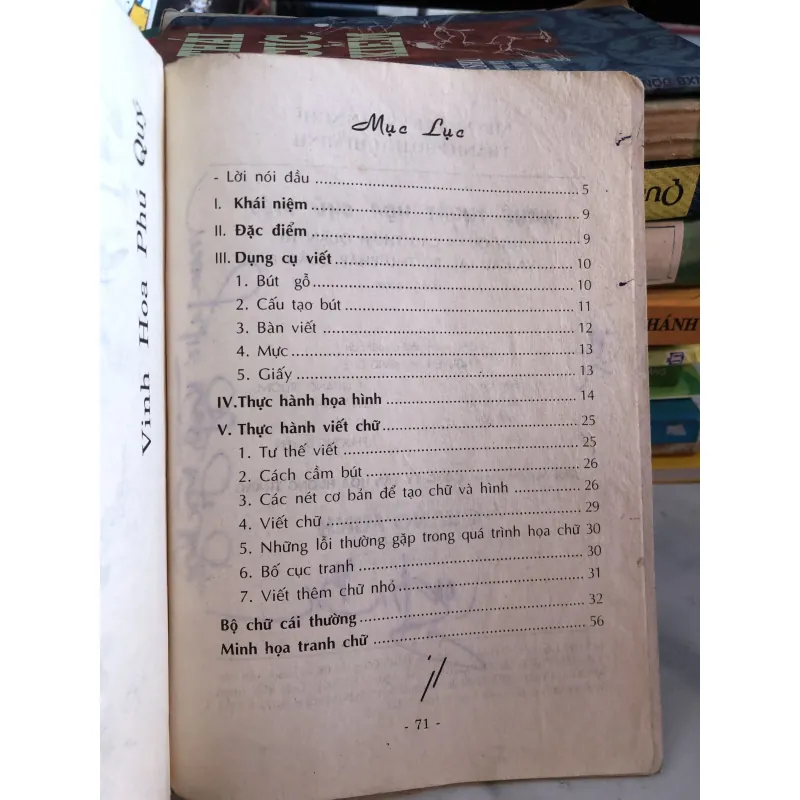 Vinh Hoa Phú Quý
Mục Lục
- Lời nói dầu ........ 5
I. Khái niệm ........ 9
II. Đặc điểm ........ 9
III. Dụng cụ viết ........ 10
1. Bút gỗ ........ 10
2. Cấu tạo bút ........ 11
3. Bàn viết ........ 12
4. Mực ........ 13
5. Giấy ........ 13
IV. Thực hành họa hình ........ 14
V. Thực hành viết chữ ........ 25
1. Tư thế viết ........ 25
2. Cách cầm bút ........ 26
3. Các nét cơ bản để tạo chữ và hình ........ 26
4. Viết chữ ........ 29
5. Những lỗi thường gặp trong quá trình họa chữ 30
6. Bố cục tranh ........ 30
7. Viết thêm chữ nhỏ ........ 31
Bộ chữ cái thường ........ 32
Minh họa tranh chữ ........ 56
- 71 -
KHÁNH